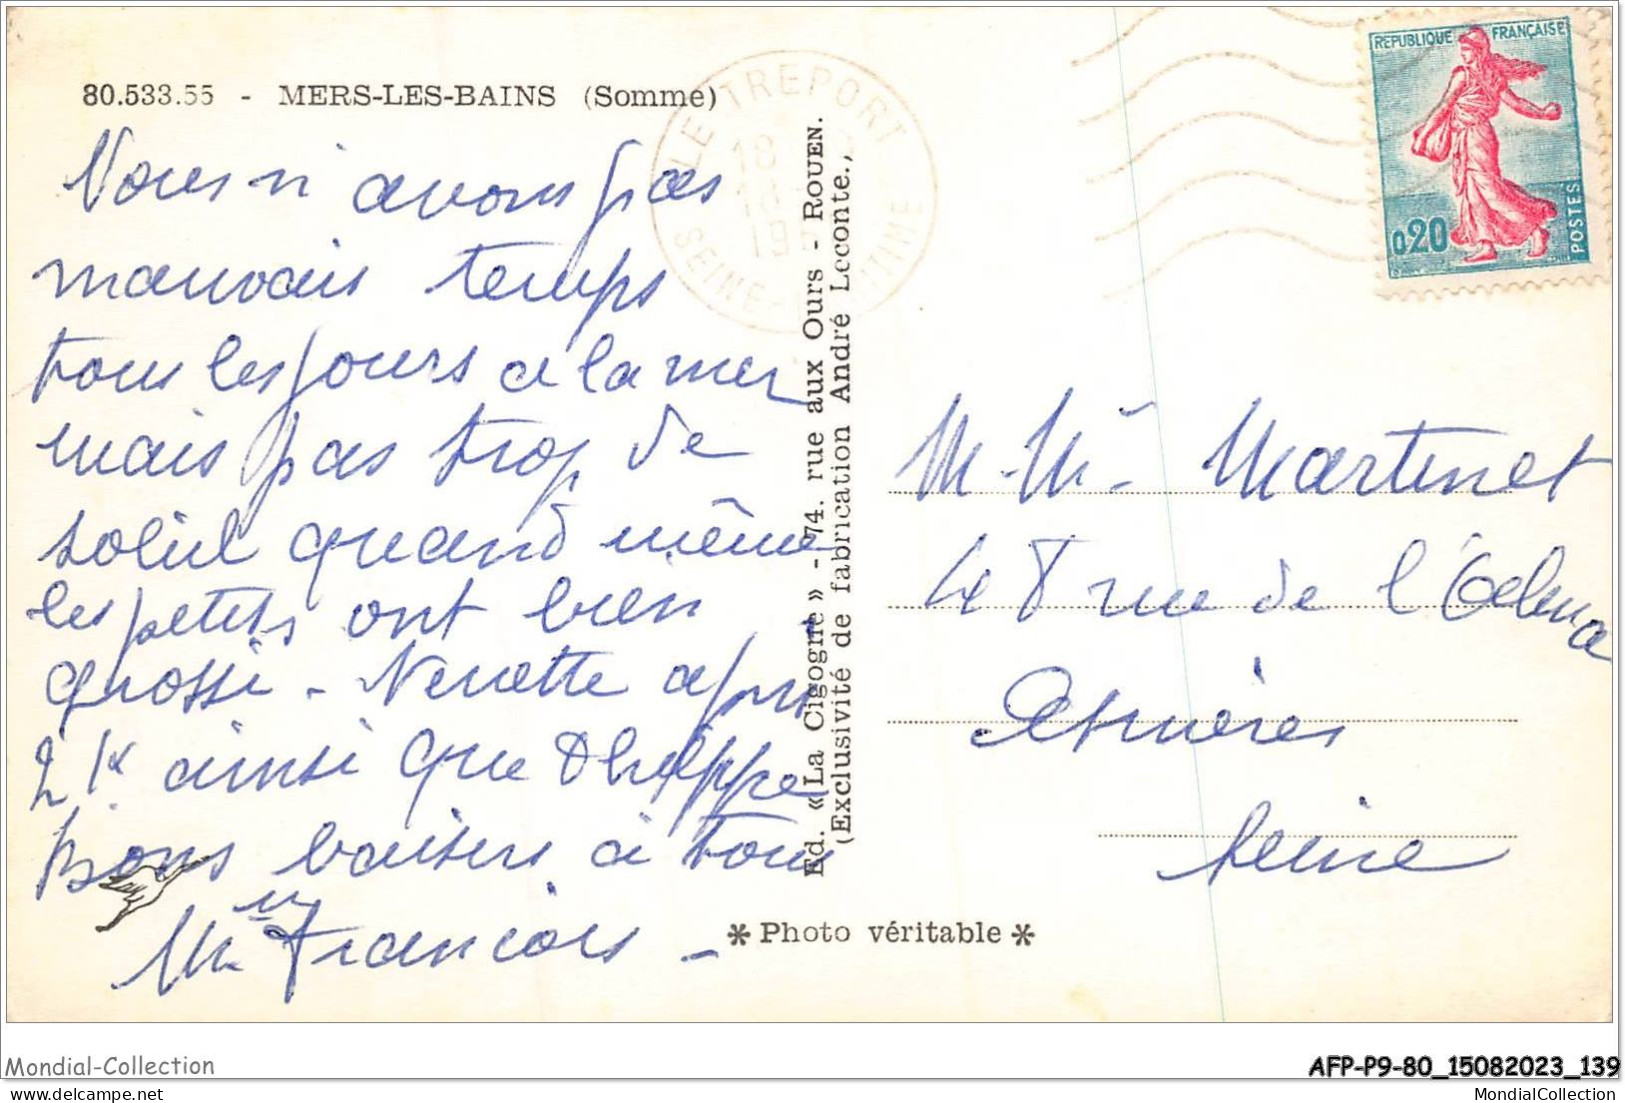 80.533.55 - MERS-LES-BAINS (Somme)
Nous n'avons pas
mauvais temps
tous les jours a la mer
mais pas trop de
soleil quand même
les petits ont bien
grossi - Nenette a pris
2 K ainsi que Philippe
Bons baisers à tous
Mme François -
LE TREPORT
18
19
SEINE - MARITIME
Ed. «La Cigogne» - 74. rue aux Ours - ROUEN.
(Exclusivité de fabrication André Leconte.,
* Photo véritable *
REPUBLIQUE FRANÇAISE
0,20
POSTES
M. Me Martinet
48 rue de l'
Asnières
Seine
Mondial-Collection
AFP-P9-80_15082023_139
delcampe.net
MondialCollection